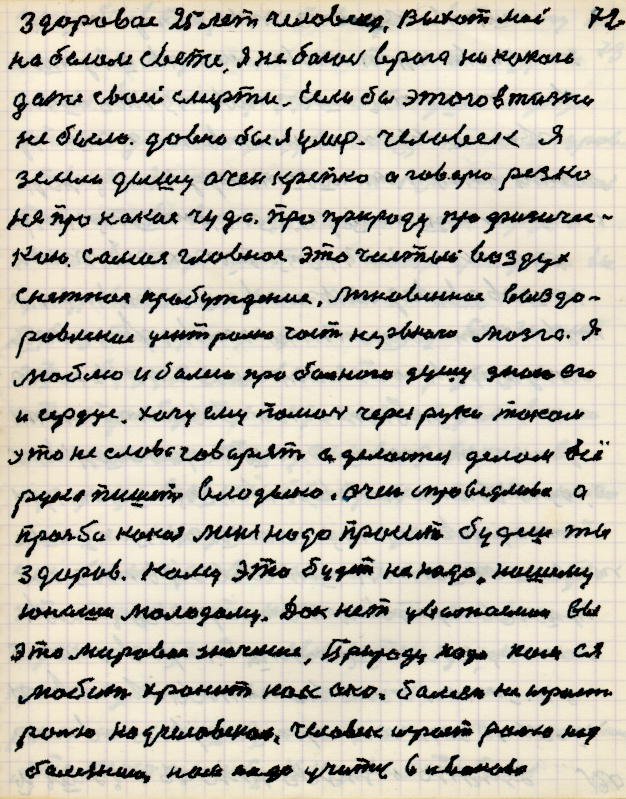 здоровае 25 лет человека. Выхот мой 72
на белом свете. Я не боюсь врага никокого
даже своей смерти. Если бы этого в жизни
не было. довно бы я умир. человек я
земли дышу очен крепко а говарю резко
не про какая чудо. про природу про физичес-
кою. Самая главное это чистый воздух
снежная пробуждение, мгновенное выздо-
ровление централно част нервного мозга. Я
люблю и балею про боного душу знаю его
и сердце. хочу ему помоч через руки током
это не слова говарят а делоится делом всё
рука пишет владыко. очен справедлива а
прозба какая меня надо просит будеш ты
здоров. Кому это будет не надо, нашему
юнаше молодому. Док нет уважаемаи вы
это мировое значение, Природу надо как
любит хранит как око. болезн не играит
ролю над человеком, человек играет ролю над
болезнию, нам надо учитс в Иванова